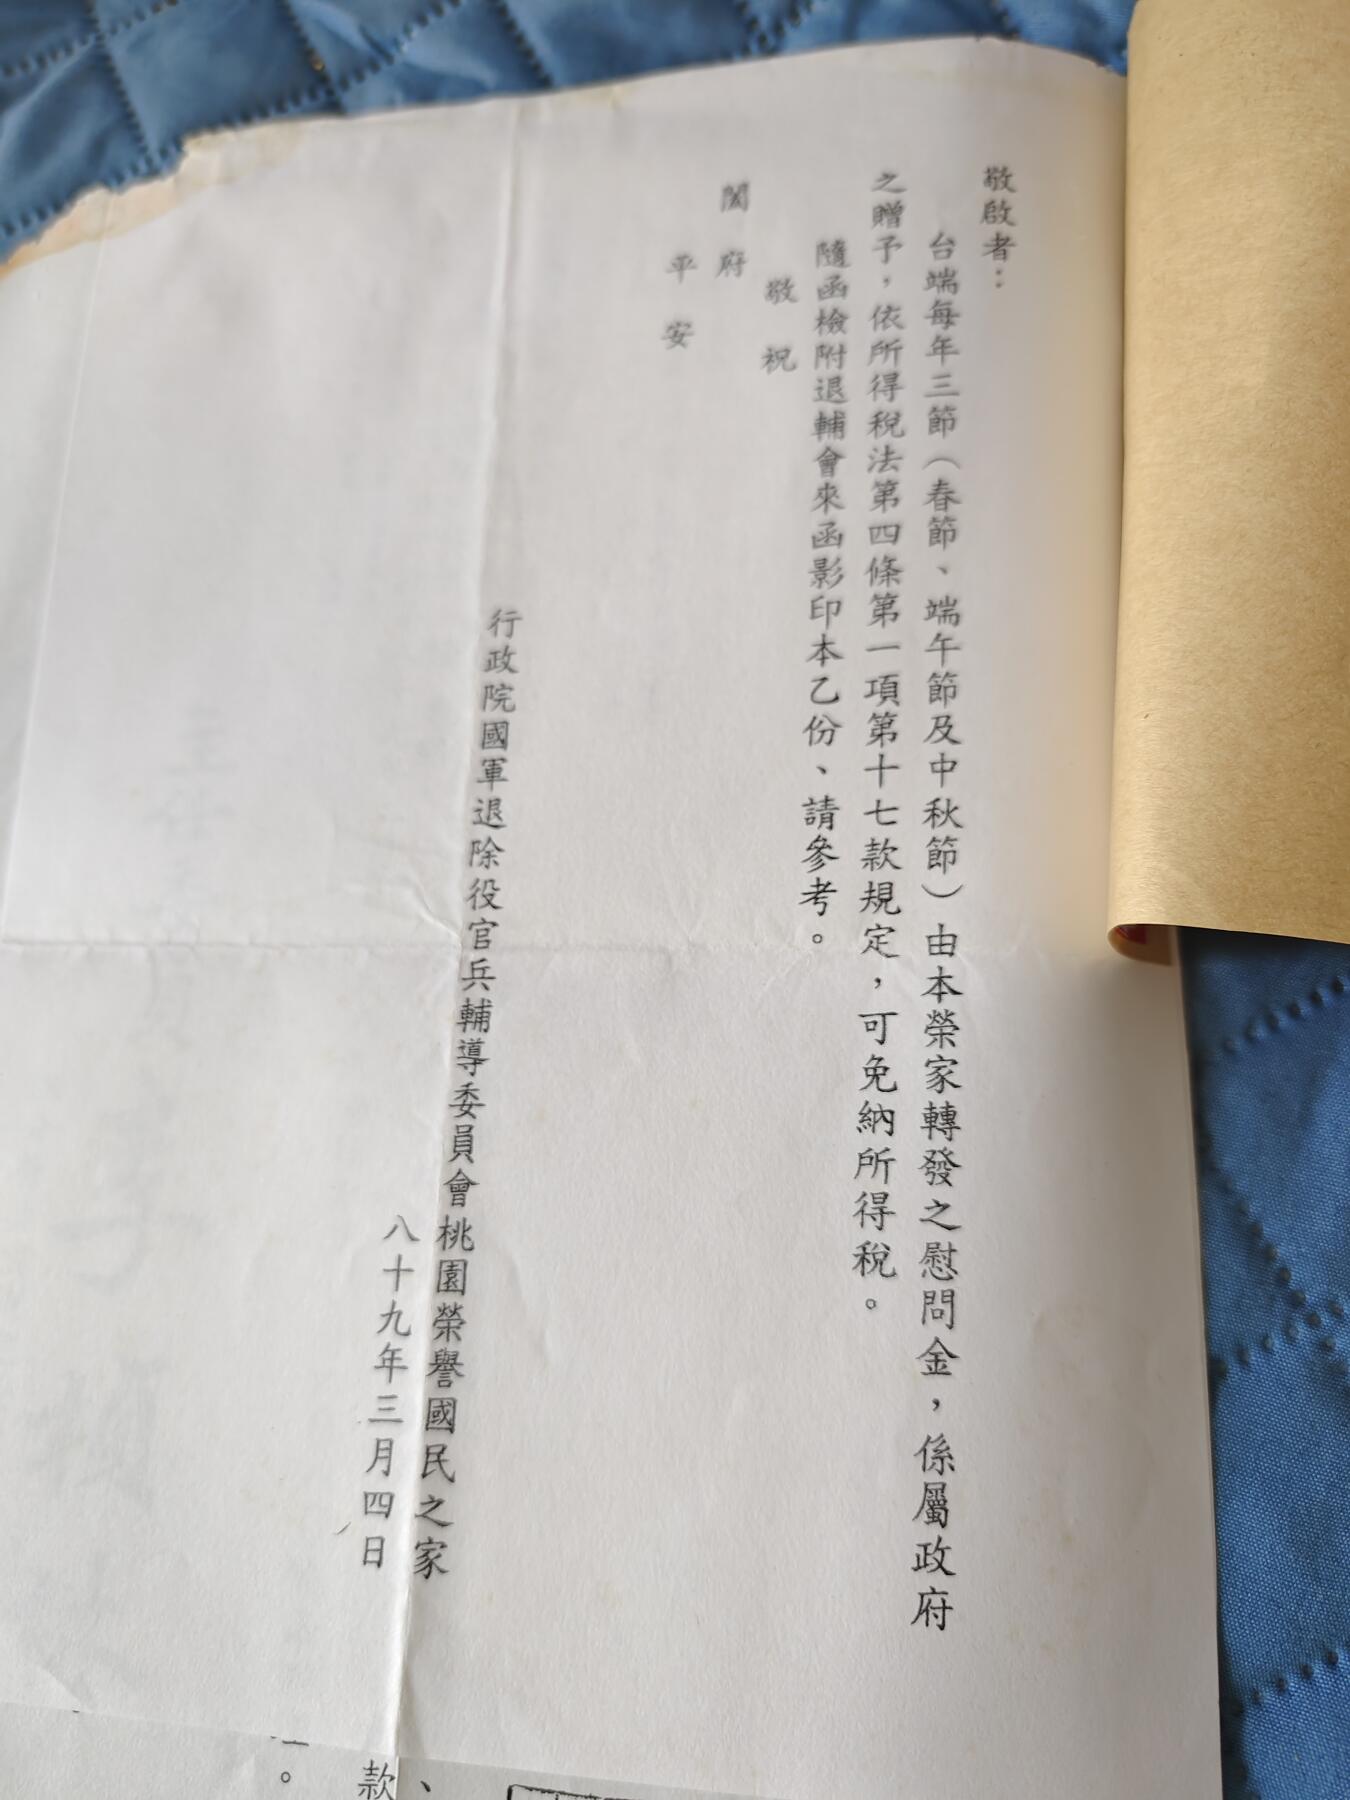 敬啟者：
台端每年三節（春節、端午節及中秋節）由本榮家轉發之慰問金，係屬政府
之贈予，依所得稅法第四條第一項第十七款規定，可免納所得稅。
隨函檢附退輔會來函影印本乙份、請參考。
敬祝
闔府
平安
行政院國軍退除役官兵輔導委員會桃園榮譽國民之家
八十九年三月四日
、
款
。